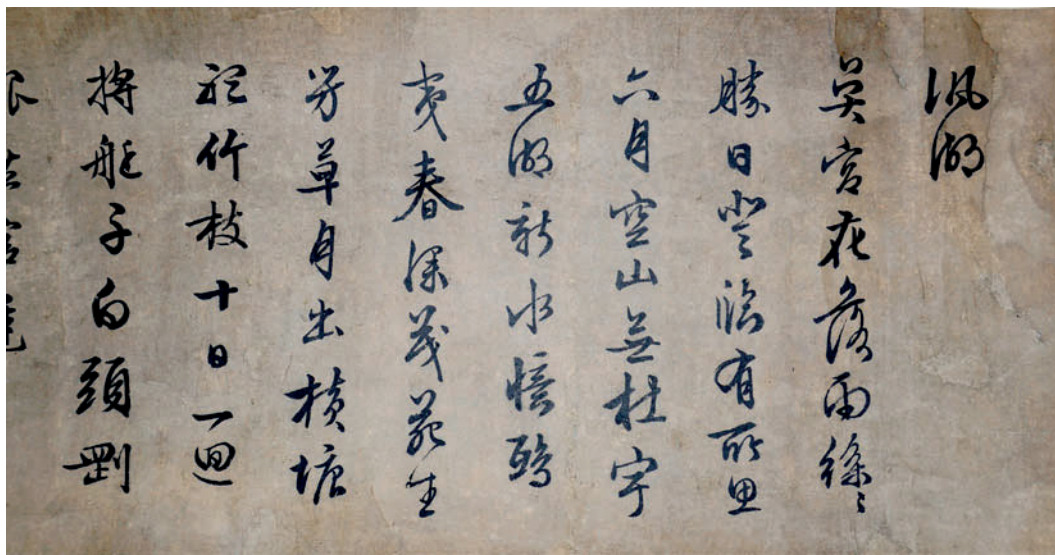 湖
吳宮花落雨絲〻
勝日登臨有所思
六月空山無杜宇
五湖新水憶鴟
夷春深茂苑生
芳草月出橫塘
竹枝十日一迴
將艇子白頭剛